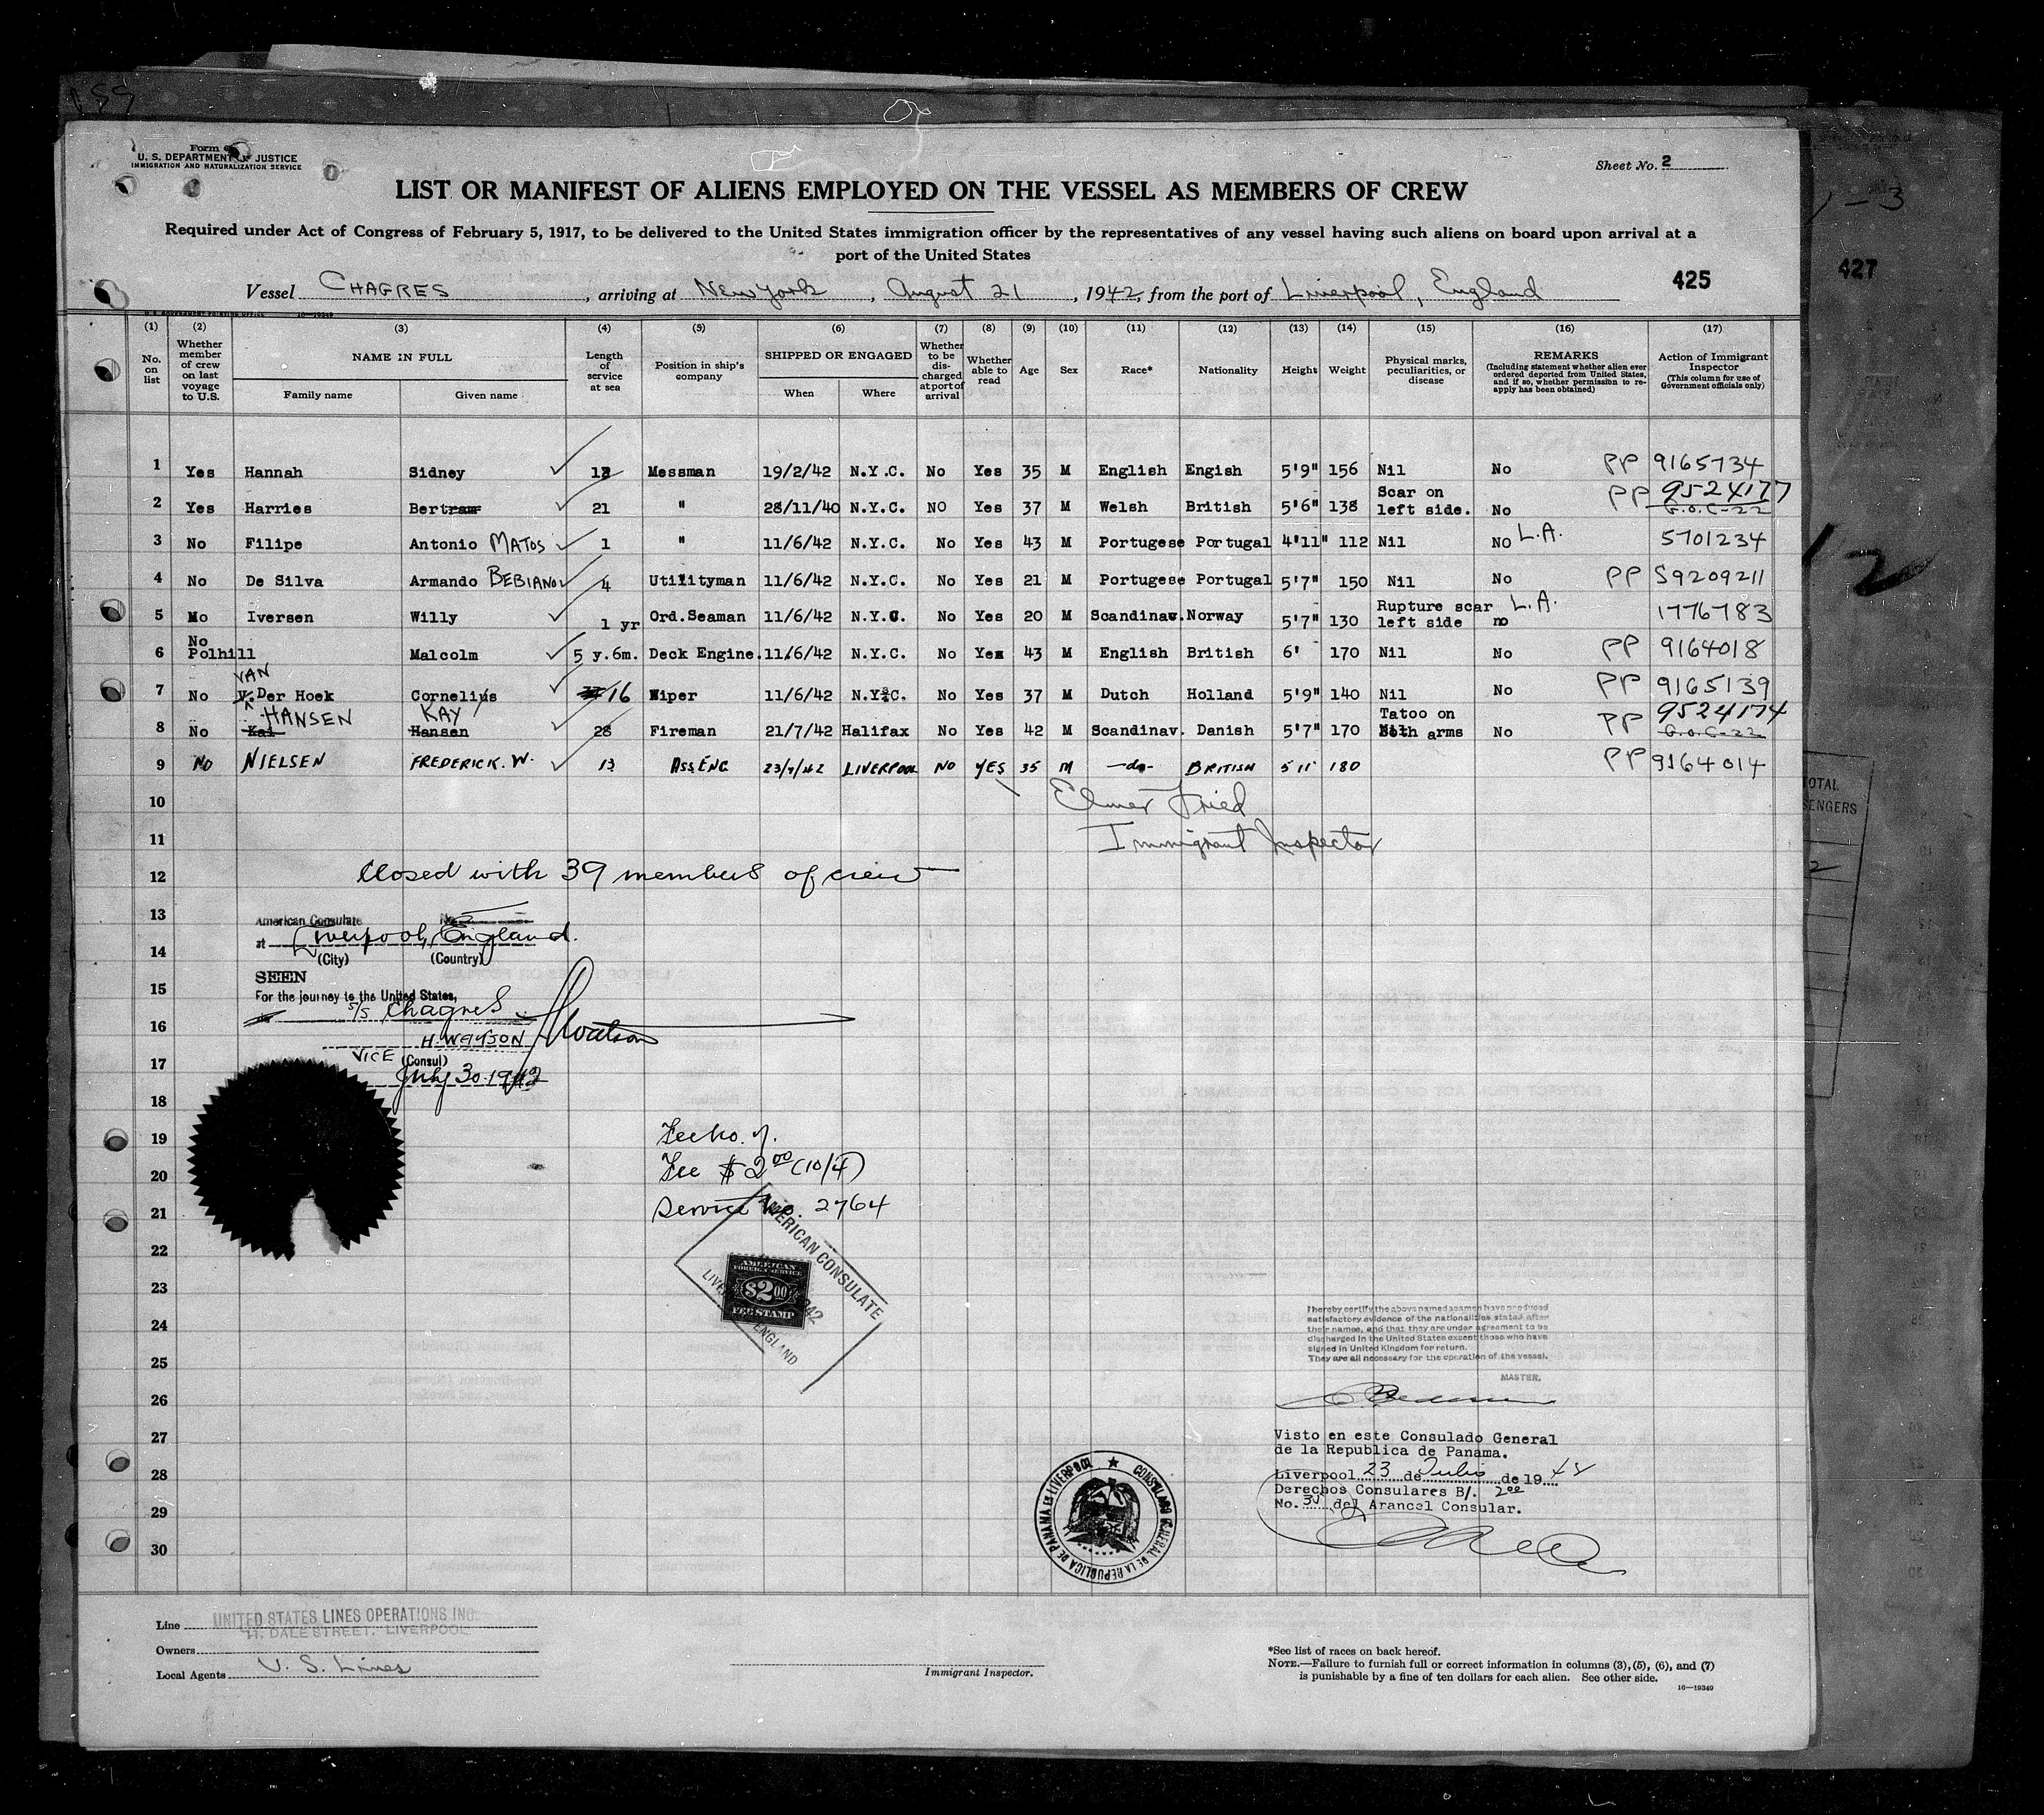 Form
U. S. DEPARTMENT OF JUSTICE
IMMIGRATION AND NATURALIZATION SERVICE
Sheet No. 2
LIST OR MANIFEST OF ALIENS EMPLOYED ON THE VESSEL AS MEMBERS OF CREW
Required under Act of Congress of February 5, 1917, to be delivered to the United States immigration officer by the representatives of any vessel having such aliens on board upon arrival at a
port of the United States
Vessel CHAGRES, arriving at New York, August 21, 1942, from the port of Liverpool, England 425
427
(1) (2) (3) (4) (5) (6) (7) (8) (9) (10) (11) (12) (13) (14) (15) (16) (17)
No. on list
Whether member of crew on last voyage to U.S.
NAME IN FULL
Family name Given name
Length of service at sea
Position in ship's company
SHIPPED OR ENGAGED
When Where
Whether to be discharged at port of arrival
Whether able to read
Age
Sex
Race*
Nationality
Height
Weight
Physical marks, peculiarities, or disease
REMARKS
(Including statement whether alien ever ordered deported from United States, and if so, whether permission to reapply has been obtained)
Action of Immigrant Inspector
(This column for use of Government officials only)
1 Yes Hannah Sidney 12 Messman 19/2/42 N.Y.C. No Yes 35 M English Engish 5'9" 156 Nil No PP 9165734
2 Yes Harries Bertram 21 " 28/11/40 N.Y.C. NO Yes 37 M Welsh British 5'6" 138 Scar on left side. No PP 9524177 G.O.C-22
3 No Filipe Antonio MATOS 1 " 11/6/42 N.Y.C. No Yes 43 M Portugese Portugal 4'11" 112 Nil NO L.A. 5701234
4 No De Silva Armando BEBIANO 4 Utilityman 11/6/42 N.Y.C. No Yes 21 M Portugese Portugal 5'7" 150 Nil No PP S9209211
5 Mo Iversen Willy 1 yr Ord.Seaman 11/6/42 N.Y.C. No Yes 20 M Scandinav. Norway 5'7" 130 Rupture scar left side no L.A. 1776783
6 No Polhill Malcolm 5 y.6m. Deck Engine. 11/6/42 N.Y.C. No Yes 43 M English British 6' 170 Nil No PP 9164018
7 No VAN Der Hoek Cornelius 16 Wiper 11/6/42 N.Y.C. No Yes 37 M Dutch Holland 5'9" 140 Nil No PP 9165139
8 No Kai HANSEN Hansen KAY 28 Fireman 21/7/42 Halifax No Yes 42 M Scandinav. Danish 5'7" 170 Tatoo on Both arms No PP 9524174 G.O.C-22
9 NO NIELSEN FREDERICK. W. 13 ASS ENG 23/7/42 LIVERPOOL NO YES 35 M —do— BRITISH 5 11 180 PP 9164014
10 Elmer Fried
11 Immigrant Inspector
12 Closed with 39 members of crew
13
American Consulate No.
14
at Liverpool, England.
(City) (Country)
SEEN
15
For the journey to the United States,
S/S Chagres
16
H. WATSON HWatson
VICE (Consul)
17
July 30. 1942
18
19
Fee $2.00 (10/4)
20
Service No. 2764
21
22
23
24
25
26
27
28
29
30
AMERICAN CONSULATE
LIVERPOOL ENGLAND
AMERICAN FOREIGN SERVICE
$2.00
FEE STAMP
I hereby certify the above named seamen have produced
satisfactory evidence of the nationalities stated after
their names, and that they are under agreement to be
discharged in the United States except those who have
signed in United Kingdom for return.
They are all necessary for the operation of the vessel.
MASTER.
Visto en este Consulado General
de la Republica de Panama.
Liverpool 23 de Julio de 1942
Derechos Consulares B/. 2.00
No. 30 del Arancel Consular.
CONSULADO GENERAL DE LA REPUBLICA DE PANAMA EN LIVERPOOL
Line UNITED STATES LINES OPERATIONS INC.
DALE STREET, LIVERPOOL
Owners
Local Agents U. S. Lines
Immigrant Inspector.
*See list of races on back hereof.
NOTE.—Failure to furnish full or correct information in columns (3), (5), (6), and (7)
is punishable by a fine of ten dollars for each alien. See other side.
16—19349